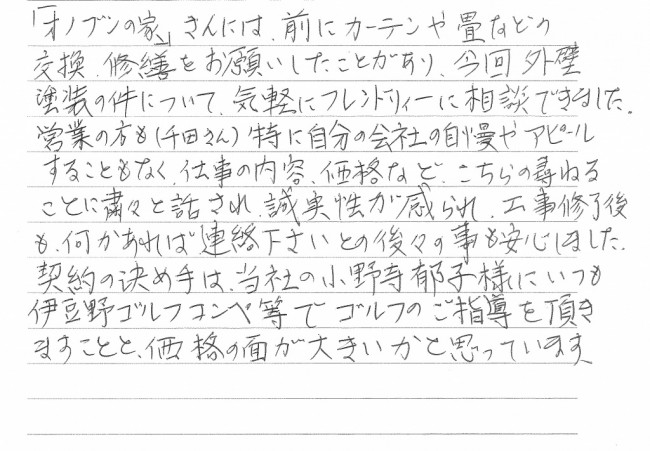 「オノブンの家」さんには、前にカーテンや畳などの
交換、修繕をお願いしたことがあり、今回外壁
塗装の件について、気軽にフレンドリィーに相談できました。
営業の方も(千田さん)特に自分の会社の自慢やアピール
することもなく、仕事の内容、価格など、こちらの尋ねる
ことに粛々と話され、誠実性が感られ、工事修了後
も、何かあれば連絡下さいとの後々の事も安心しました。
契約の決め手は、当社の小野寺郁子様にいつも
伊豆野ゴルフコンペ等でゴルフのご指導を頂き
ますことと、価格の面が大きいかと思っています